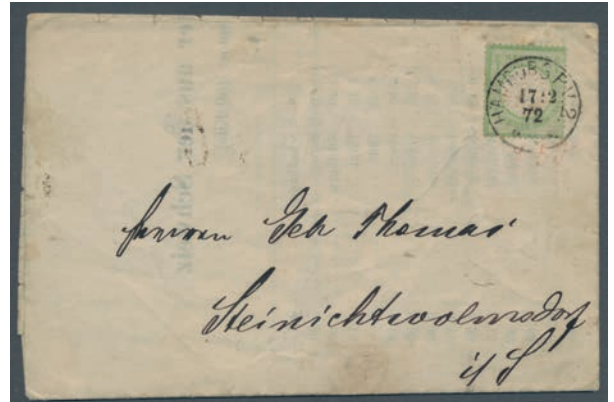 HAMBURG P.V. 2
17 12
72
Herren Geb Thomas
Steinichtwolmsdorf
i/S